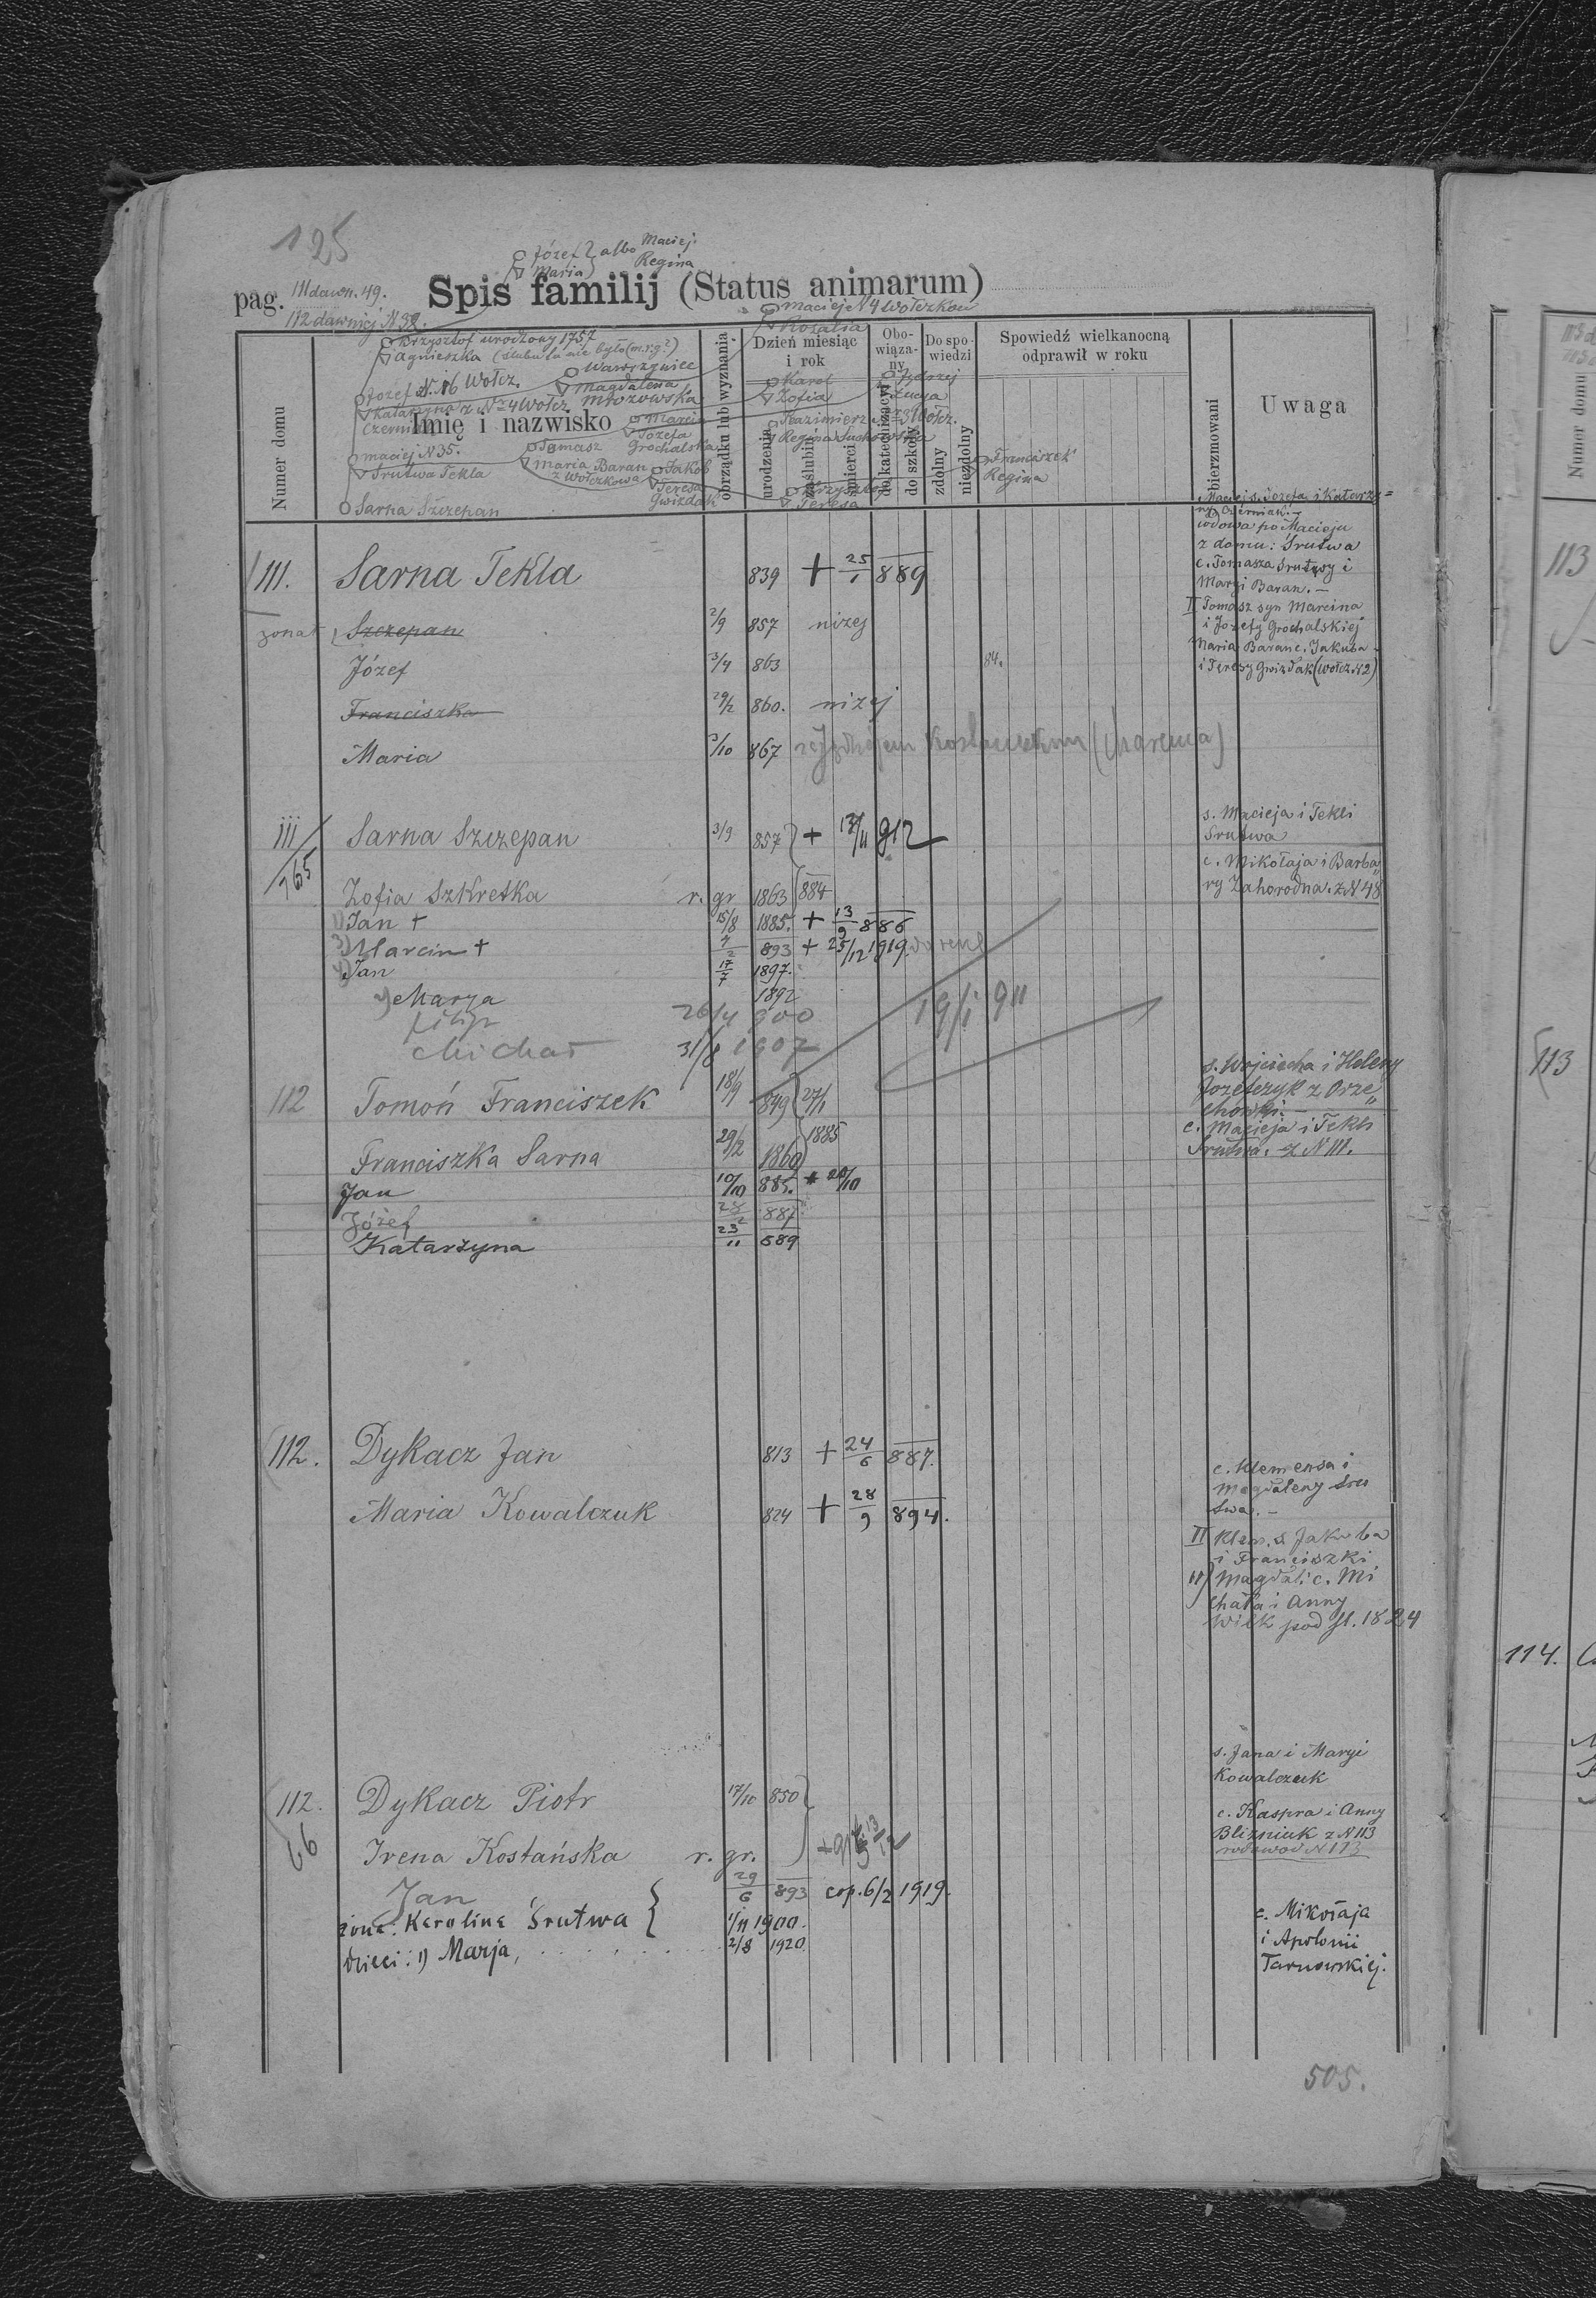 125
Józef } albo Maciej
Maria } Regina
pag. 111 dawn. 49.
112 dawniej N 32.
Spis familij (Status animarum)
Maciej N 4 Wołczkow
Rozalia
Krzysztof urodzony 1757
Agnieszka (ślubu tu nie było (m.r.g.?)
Józef N. 16 Wołcz.
Katarzyna z N 4 Wołcz.
Czerniak
Wawrzyniec
Magdalena
Mrozowska
Karol
Zofia
Jędrzej
Łucya
Kazimierz N 3 Wołcz.
Regina Suchowska
Marcin
Józefa
Grochalska
Maciej N 35.
Srutwa Tekla
Tomasz
Maria Baran
z Wołczkowa
Jakób
Teresa
Gwizdak
Krzysztof
Teresa
Franciszek
Regina
Sarna Szczepan
Numer domu
Imię i nazwisko
obrządku lub wyznania
Dzień miesiąc i rok
urodzenia
zaślubin
śmierci
Obowiązany
do katechizacyi
do szkoły
Do spowiedzi
zdolny
niezdolny
Spowiedź wielkanocną odprawił w roku
bierzmowani
Uwaga
111. Sarna Tekla 839 + 25/1 889
Maciej s. Józefa i Katarzy=
ny Czerniak. –
wdowa po Macieju
z domu: Srutwa
c. Tomasza Srutwy i
Maryi Baran. –
II Tomasz syn Marcina
i Józefy Grochalskiej
Maria Baran c. Jakuba
i Teresy Gwizdak (Wołcz N 2)
żonat Szczepan 2/9 857 niżej
Józef 3/4 863 84.
Franciszka 29/2 860. niżej
Maria 3/10 867
111/765 Sarna Szczepan 3/9 857 } + 17/11 912
s. Macieja i Tekli
Srutwa
Zofia Szkretka r. gr 1863 884
c. Mikołaja i Barba
ry Zahorodna. z N 48
1) Jan + 15/8 1885. + 13/9 886
3) Marcin + 4/2 893 + 25/12 1919.
4) Jan 17/7 1897.
2) Marya 1892
Filip 26/4 900 19/1 911
Michał 31/8 1907
112 Tomoń Franciszek 18/9 849 27/1
s. Wojciecha i Heleny
Józefczyk z Orze
chowki. –
Franciszka Sarna 29/2 1860 1885
c. Macieja i Tekli
Srutwa. z N 111.
Jan 10/10 885. + 20/10
Józef 887
Katarzyna 23/11 889
112. Dykacz Jan 813 + 24/6 887.
Maria Kowalczuk 824 + 28/9 894.
c. Klemensa i
Magdaleny Sru
twa. –
II Klem. s. Jakuba
i Franciszki
II) Magdal. c. Mi
chała i Anny
Wilk pod sl. 1824
112. Dykacz Piotr 17/10 850
s. Jana i Maryi
Kowalczuk
66
Irena Kostańska r. gr.
c. Kaspra i Anny
Blizniuk z N 113
rodowód N 113
Jan 29/6 893 cop. 6/2 1919.
żona: Karolina Śrutwa { 1/11 1900.
c. Mikołaja
i Apolonii
Tarnowskiej.
dzieci: 1) Marja, 2/8 1920.
505.
Numer domu
113
113
114.